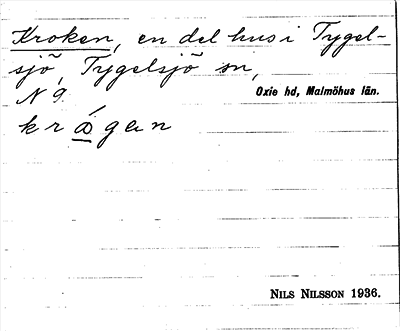 Kroken, en del hus i Tygel-
sjö, Tygelsjö sn,
N 9. Oxie hd, Malmöhus län.
Nils Nilsson 1936.